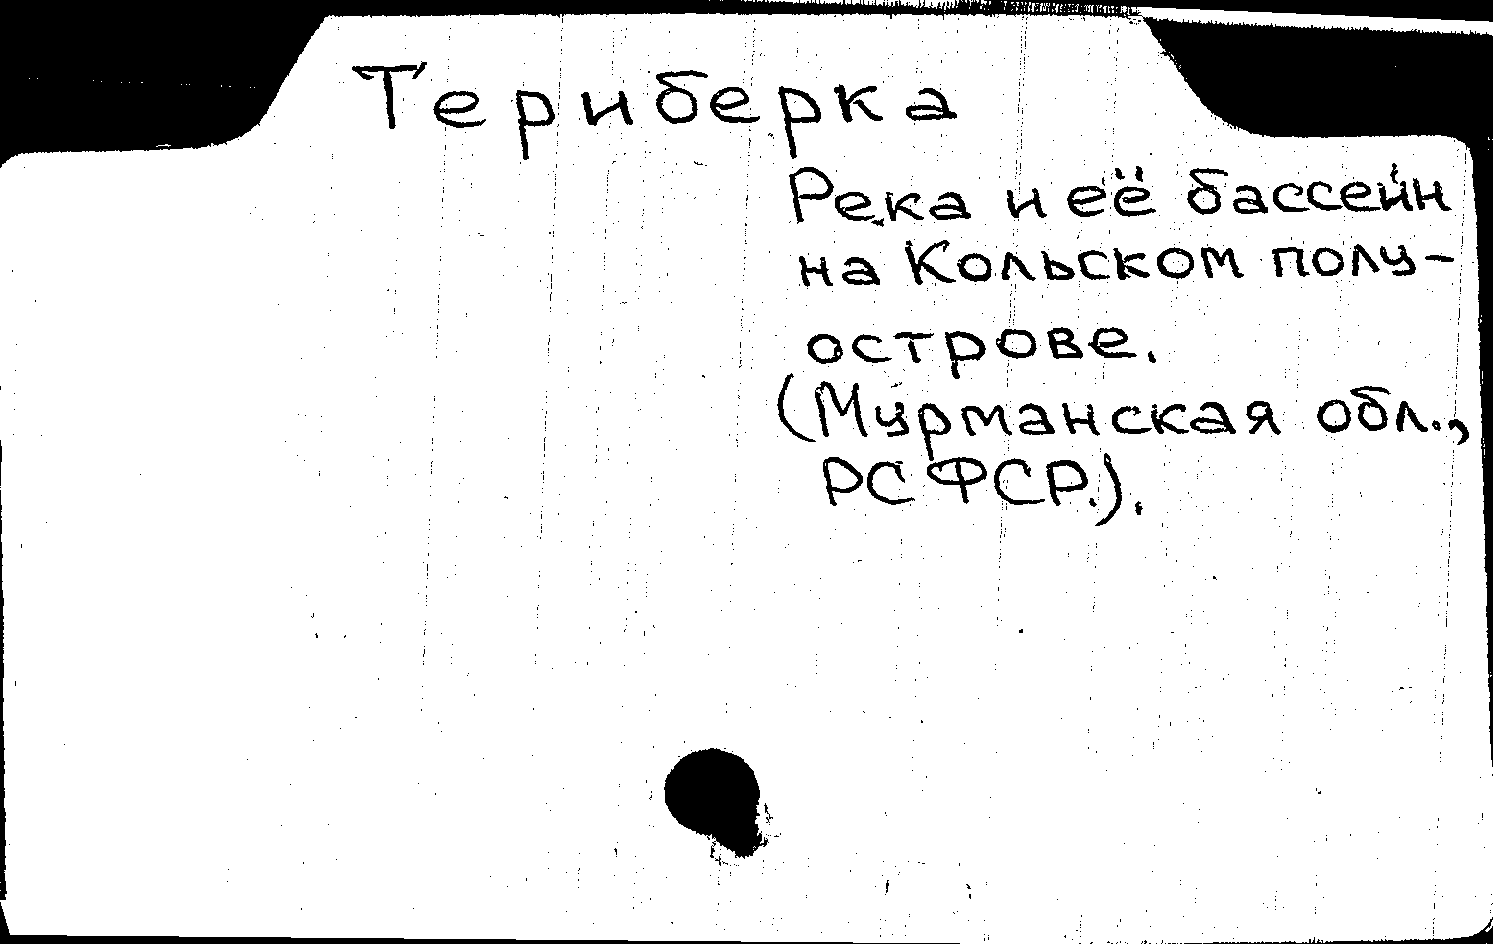 Териберка
Река и её бассейн
на Кольском полу-
острове.
(Мурманская обл.,
РСФСР.).